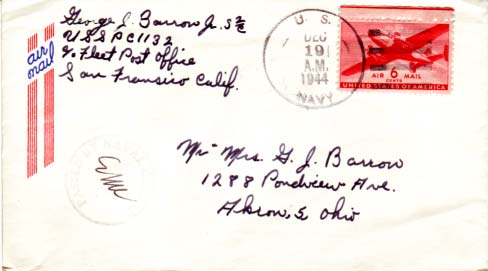 George J. Barrow Jr. S 2/c
USS PC 1132
c/o Fleet Post Office
San Fransico Calif.
air
mail
U. S.
DEC
19
A.M.
1944
NAVY
AIR 6 MAIL
CENTS
UNITED STATES OF AMERICA
PASSED BY NAVAL
Mr Mrs. G. J. Barrow
1288 Pondview Ave.
Akron, 5 Ohio